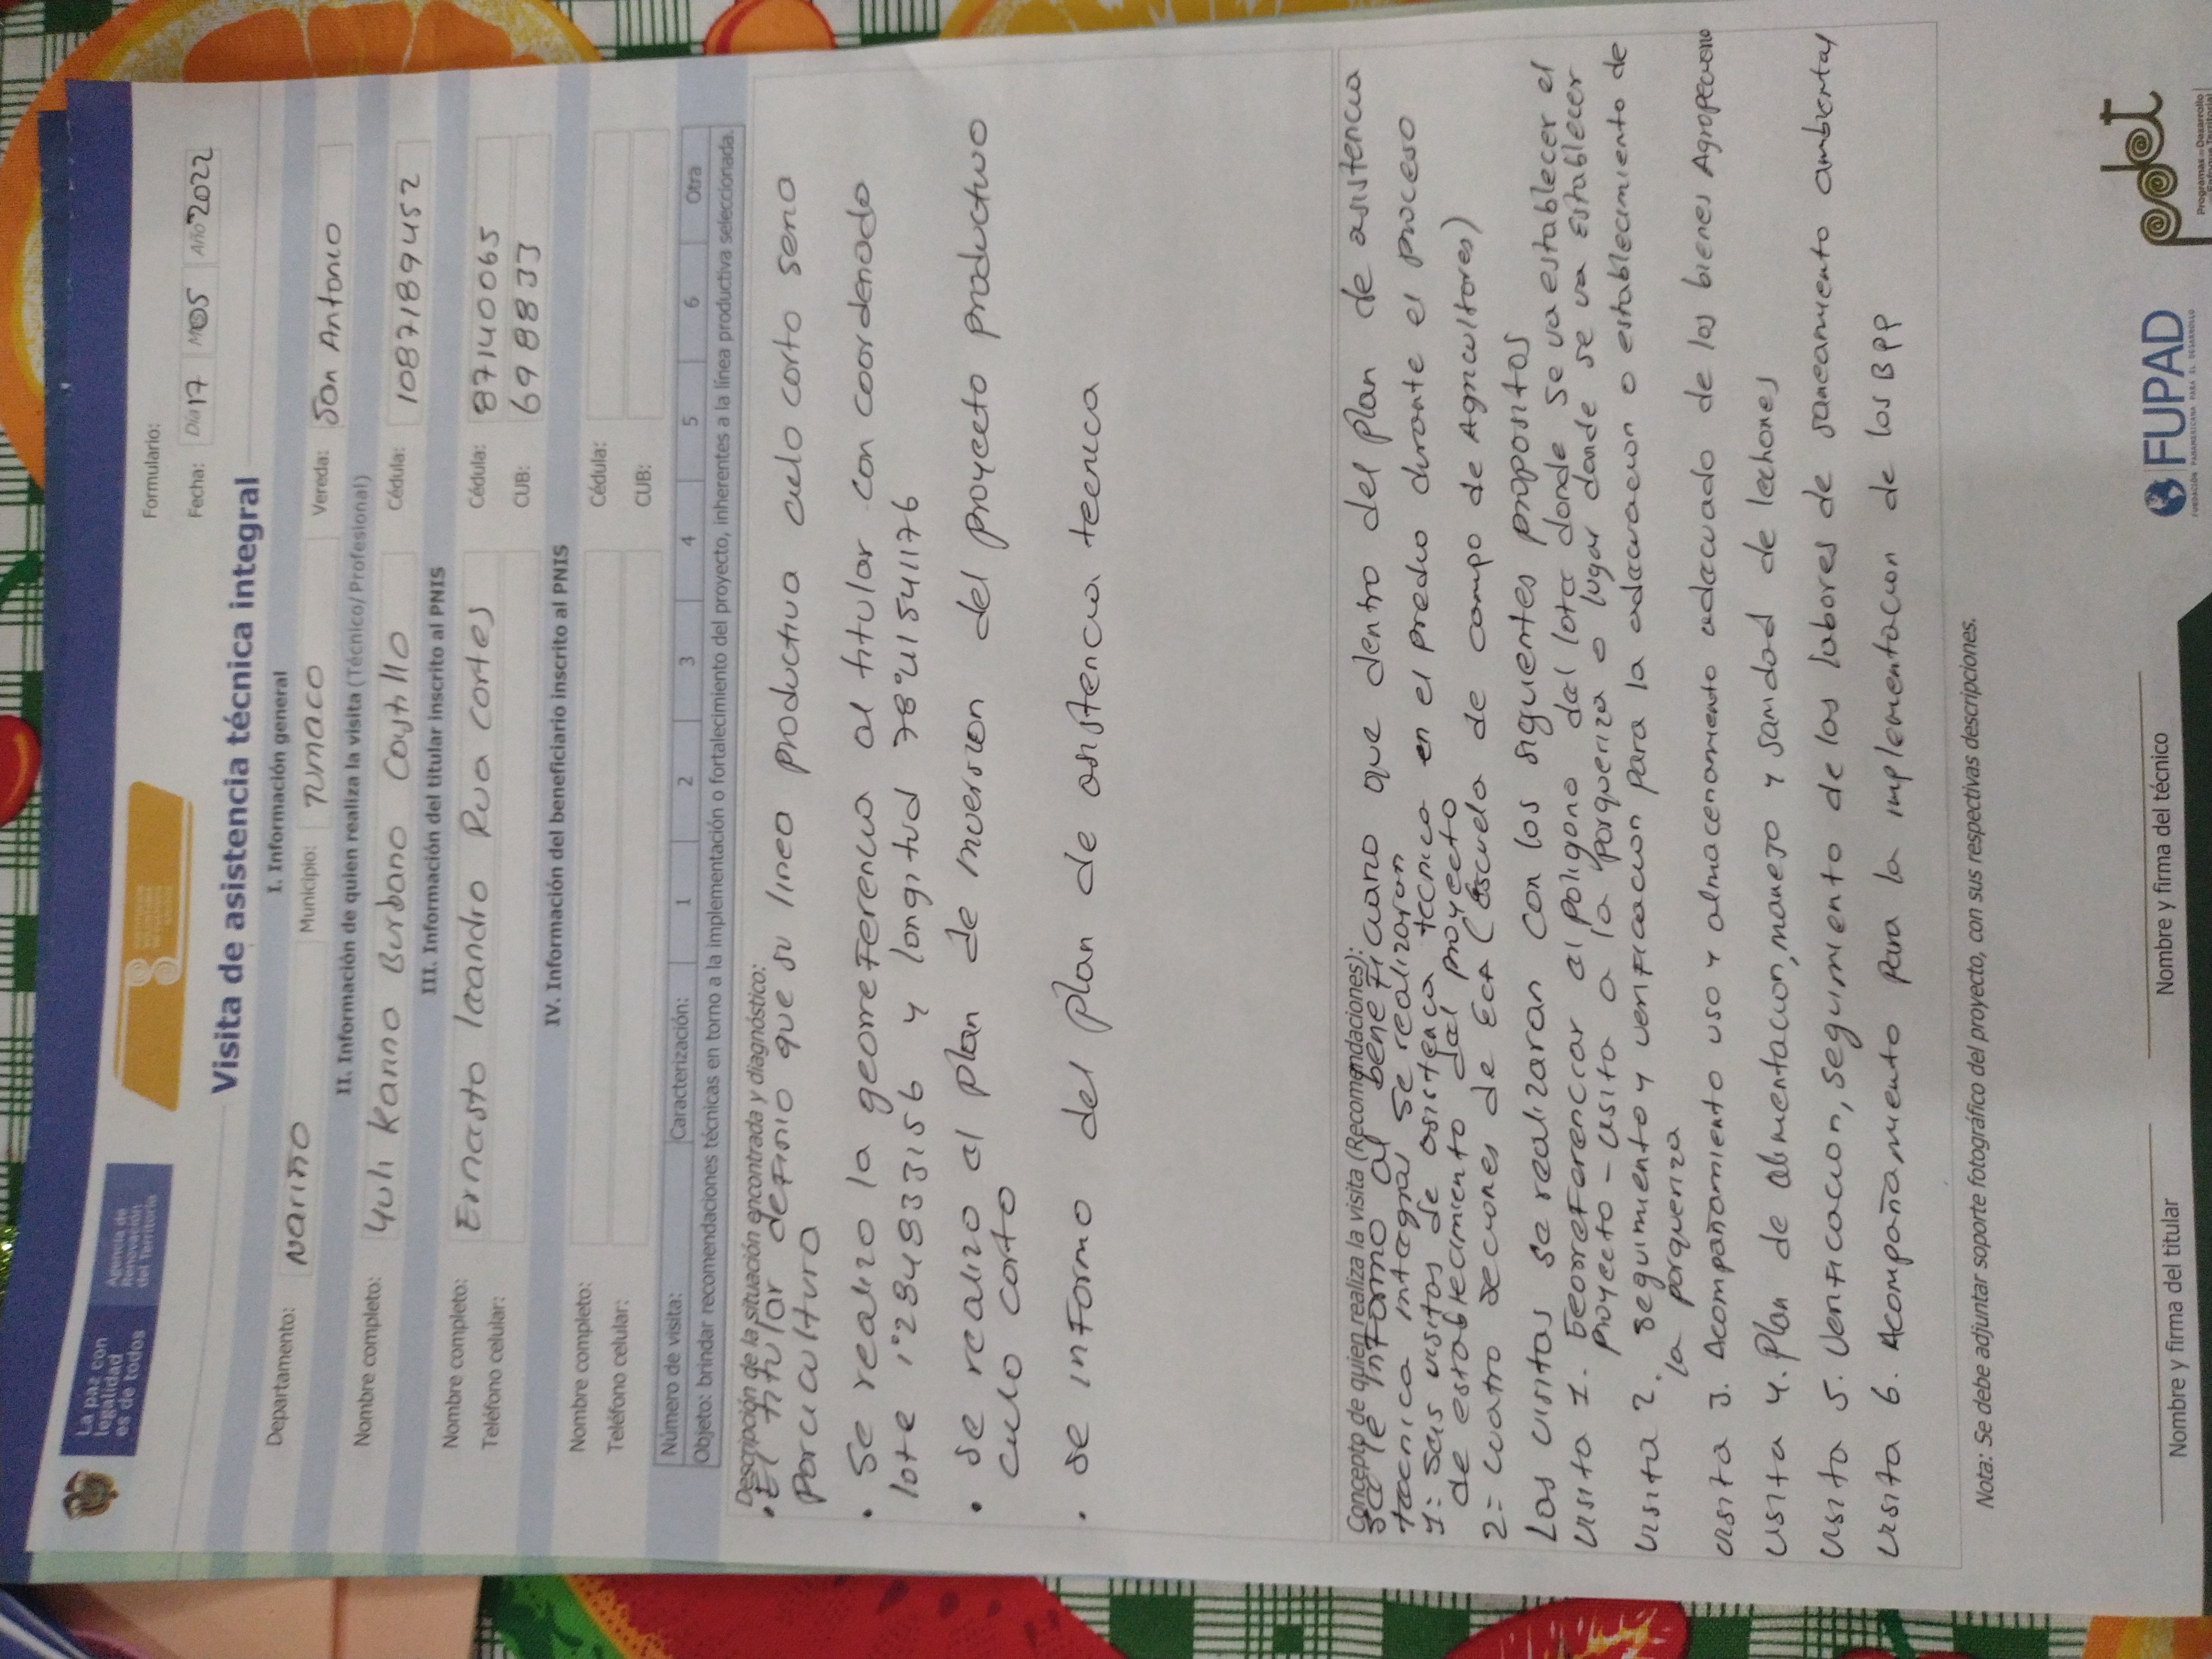 La paz con
legalidad
es de todos
Agencia de
Renovación
del Territorio
Formulario:
Fecha: Día 17 Mes 05 Año 2022
Visita de asistencia técnica integral
I. Información general
Departamento: Nariño Municipio: Tumaco Vereda: San Antonio
II. Información de quien realiza la visita (Técnico/Profesional)
Nombre completo: Yuli Karina Burbano Castillo Cédula: 1087189452
III. Información del titular inscrito al PNIS
Nombre completo: Ernesto leandro Rua cortes Cédula: 87140065
Teléfono celular: CUB: 698833
IV. Información del beneficiario inscrito al PNIS
Nombre completo: Cédula:
Teléfono celular: CUB:
Número de visita: Caracterización: 1 2 3 4 5 6 Otra
Objeto: brindar recomendaciones técnicas en torno a la implementación o fortalecimiento del proyecto, inherentes a la línea productiva seleccionada.
Descripción de la situación encontrada y diagnóstico:
• El titular definio que su linea productiva ciclo corto seria
Porcicultura
• Se realizo la georreferencia al titular con coordenada
lote 1°28'4933156 y longitud 78°42'1541176
• se realizo el plan de inversion del proyecto productivo
ciclo corto
• se informo del plan de asistencia tecnica
Concepto de quien realiza la visita (Recomendaciones):
se le informo al beneficiario que dentro del plan de asistencia
tecnica integral se realizaron
1= seis visitas de asistencia tecnica en el predio durante el proceso
de establecimiento del proyecto
2= cuatro secciones de ECA (escuela de campo de Agricultores)
Las visitas se realizaran con los siguientes propositos
visita 1. Georreferenciar el poligono del lote donde se va establecer el
proyecto - visita a la porqueriza o lugar donde se va establecer
visita 2. seguimiento y verificacion para la adecuacion o establecimiento de
la porqueriza
visita 3. Acompañamiento uso y almacenamiento adecuado de los bienes Agropecuario
visita 4. Plan de alimentacion, manejo y sanidad de lechones
visita 5. Verificacion, seguimiento de las labores de saneamiento ambiental
visita 6. Acompañamiento para la implementacion de las BPP
Nota: Se debe adjuntar soporte fotográfico del proyecto, con sus respectivas descripciones.
Nombre y firma del titular
Nombre y firma del técnico
FUPAD
FUNDACIÓN PANAMERICANA PARA EL DESARROLLO
pdet
Programas de Desarrollo
con Enfoque Territorial